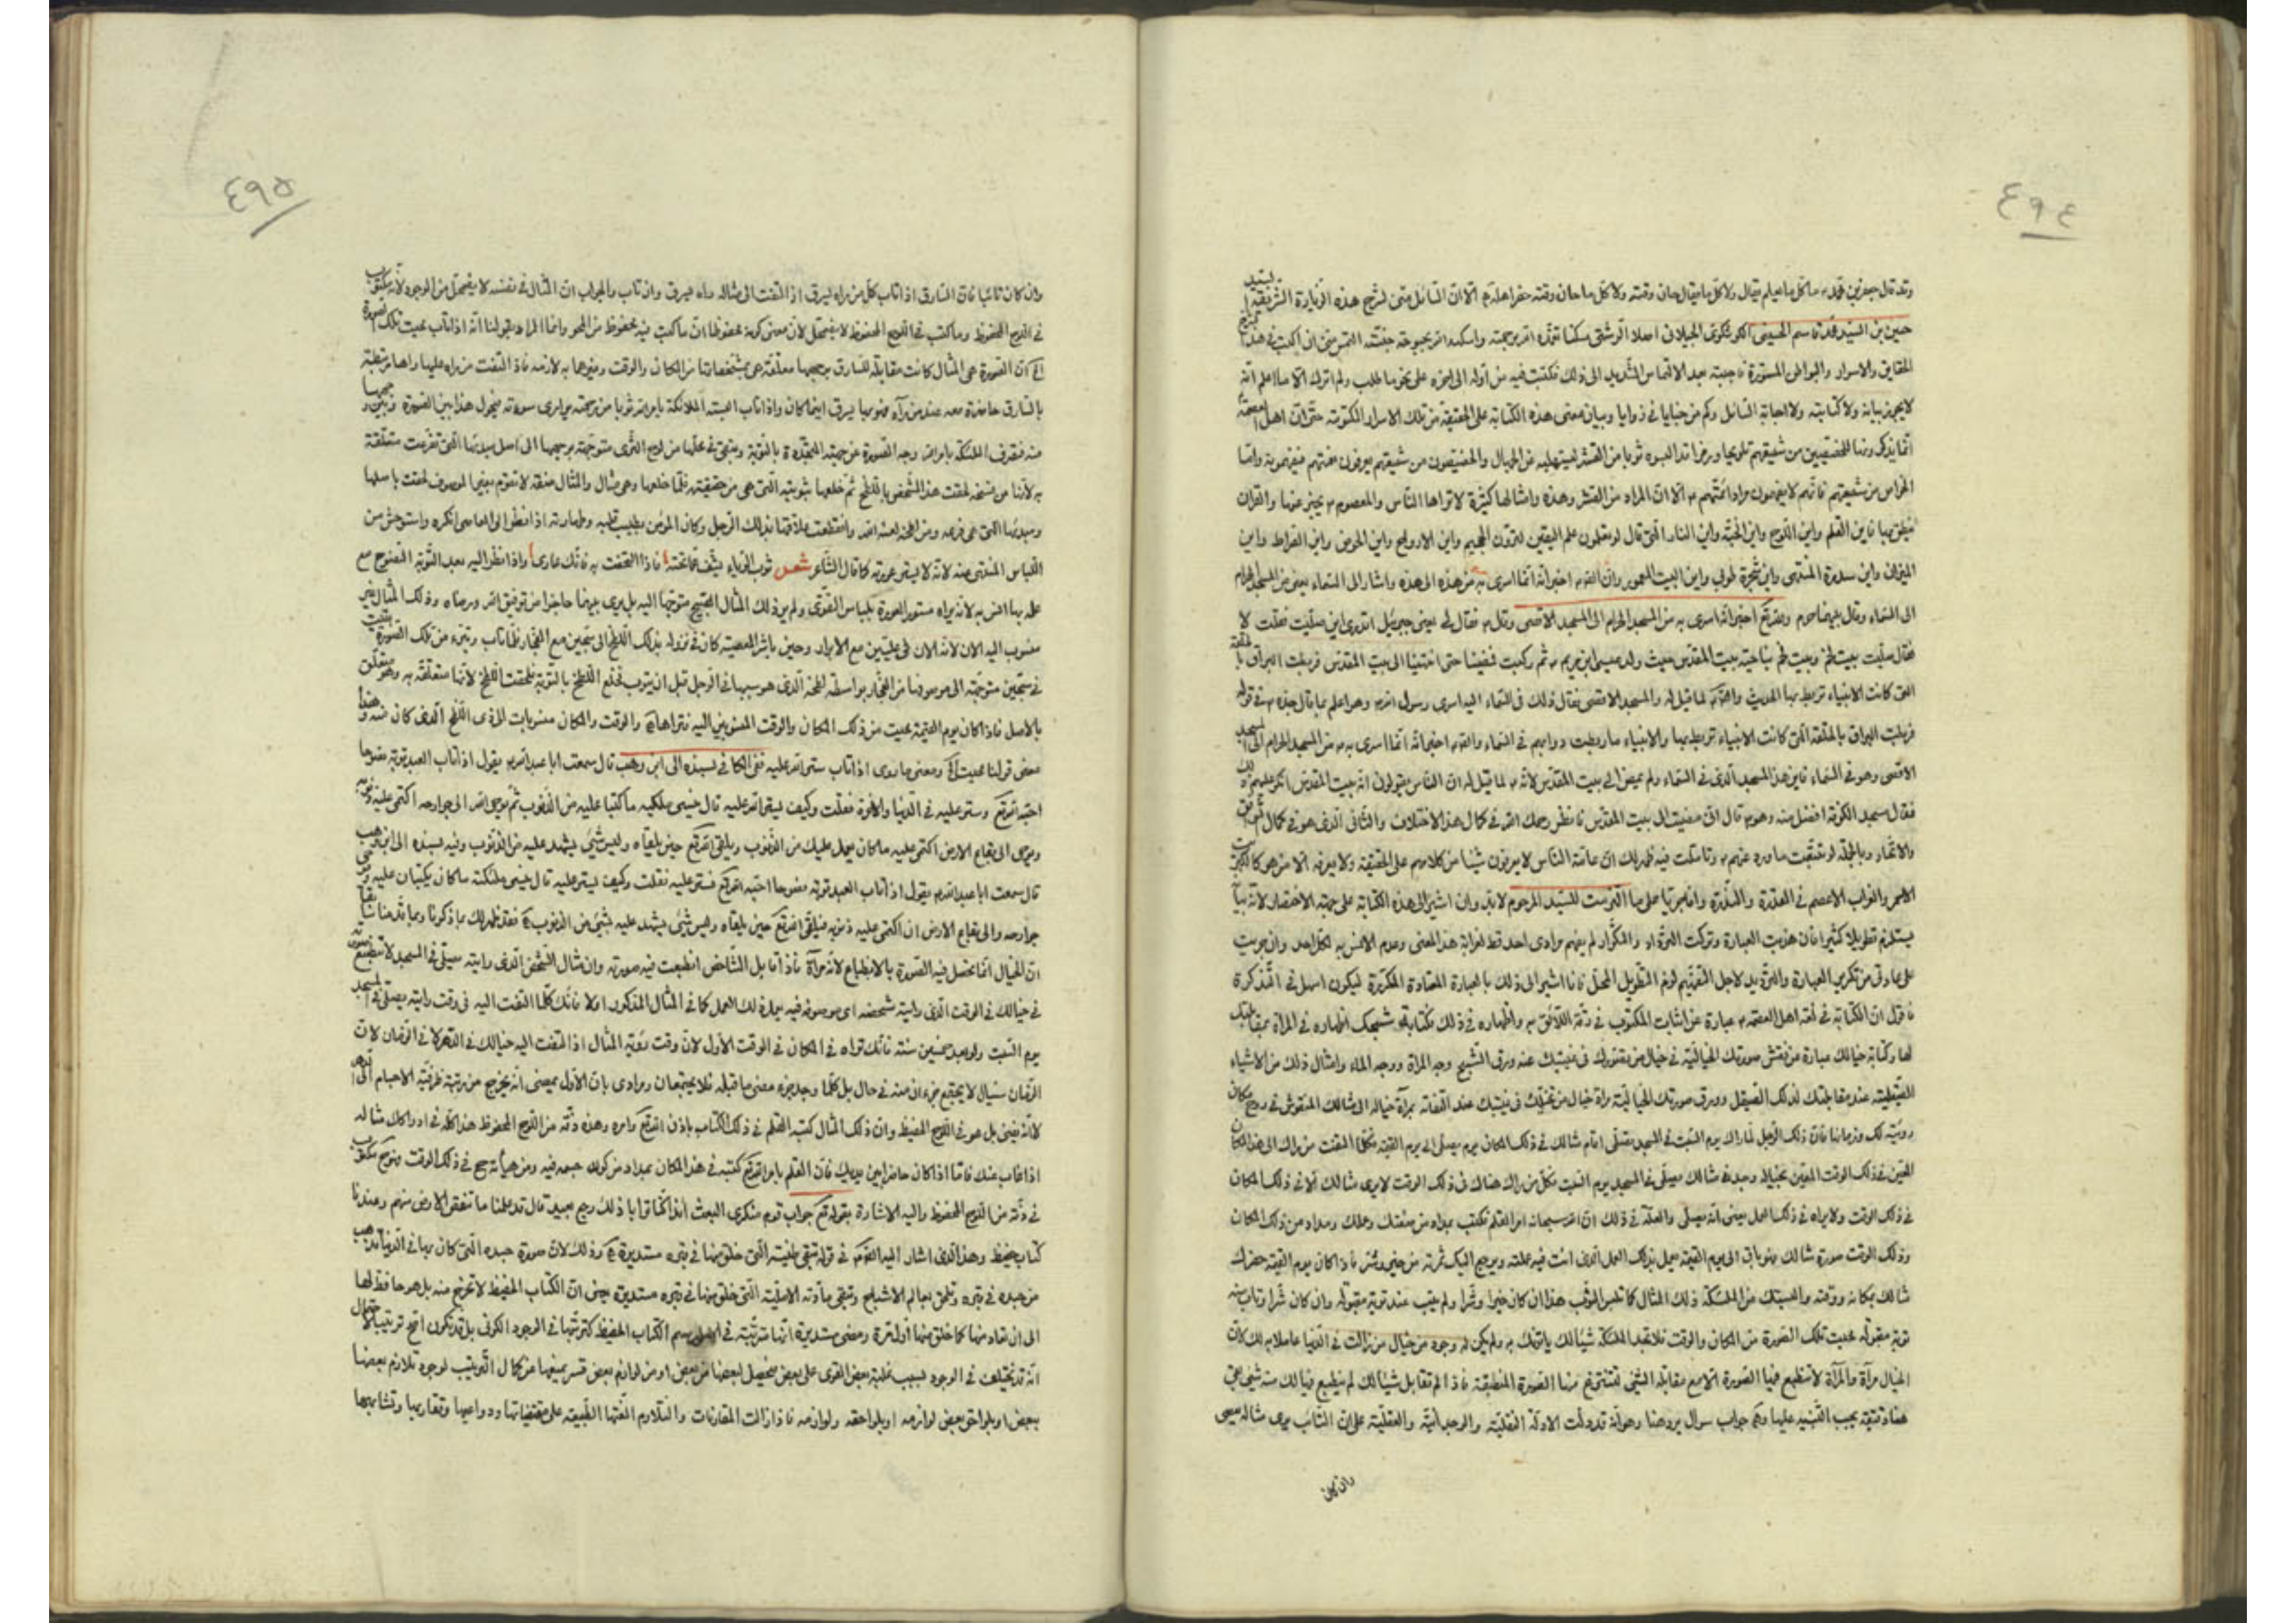 ٤٩٤
وقد قال جعفر بن محمد ما كل ما يعلم يقال ولا كل ما يقال حان وقته ولا كل ما حان وقته حضر اهله الا ان السائل متى لشرح هذه الزيارة الشريفة السيد
حسين بن السيد محمد قاسم الحسيني الجيلاني اصلا الرشتي مسكنا تغمده الله برحمته واسكنه الله بحبوحة جنته التمس مني ان اكتب في هذا
الحقايق والاسرار والبواطن المستورة فاجبته بعد الالتماس الشديد الى ذلك فكتبت فيه من أوله الى اخره على نحو ما طلب ولم اترك الا ما اعلم انه
لا يجوز بيانه ولا كتابته ولا اجابة السائل وكم من خبايا في زوايا وبيان معنى هذه الكتابة على الحقيقة من تلك الاسرار المكتومة حتى ان اهل العصمة
انما يذكرونها للخصيصين من شيعتهم تلويحا والخصيصون من شيعتهم يعرفون لغتهم فيفهمونه واما
الخواص من شيعتهم فانهم لا يفهمون مراد ائمتهم الا ان المراد من القشر وهذه وامثالها كثيرة لا تراها الناس والمعصوم يخبر عنها والقران
ينطق بها فاين القلم واين اللوح واين الجنة واين النار التي قال لو تعلمون علم اليقين لترون الجحيم واين الارواح واين الحوض واين الصراط واين
الميزان واين سدرة المنتهى واين شجرة طوبى واين البيت المعمور وان الله اخبر انه انما اسرى به من هذه الى هذه واشار الى السماء يعني من المسجد الحرام
الى السماء وقال بعضهم والله تع اخبر انه اسرى به من المسجد الحرام الى المسجد الاقصى وقال فقال لي يعني جبرئيل اتدري اين صليت فقلت لا
فقال صليت ببيت لحم وبيت لحم بناحية بيت المقدس حيث ولد عيسى ابن مريم ثم ركبت فمضينا حتى انتهينا الى بيت المقدس فربطت البراق بالحلقة
التي كانت الانبياء تربط بها الحديث لما قيل له والمسجد الاقصى فقال ذلك في السماء اليه اسرى رسول الله وهو اعلم بما قال جده في قوله
فربطت البراق بالحلقة التي كانت الانبياء تربط بها والانبياء ما ربطت دوابهم في السماء والله اخبر انه انما اسرى به من المسجد الحرام الى المسجد
الاقصى وهو في السماء فاين هذا المسجد الذي في السماء ولم يمض الى بيت المقدس لانه لما قيل له ان الناس يقولون انه بيت المقدس انكر عليهم ذلك
فقال مسجد الكوفة افضل منه وهو قال اني مضيت الى بيت المقدس فانظر رحمك الله في كمال هذا الاختلاف والثاني الذي هو في كمال التوافق
والاتحاد وبالجملة لو تتبعت ما ورد عنهم وتاملت فيه ظهر لك ان عامة الناس لا يعرفون شيئا من كلامهم على الحقيقة ولا يعرفه الا من هو كالكبريت
الاحمر والغراب الاعصم في القلة والندرة وانما جريا على ما التزمت للسيد المرحوم لابد وان اشير الى هذه الكتابة على جهة الاختصار لانه بيا
يستلزم تطويلا كثيرا فان هذبت العبارة وتركت الترداد والتكرار لم يفهم مرادي احد قط لغرابة هذا المعنى وعدم الانس به لكل احد وان جريت
على عادتي من تكرير العبارة والترديد لاجل التفهيم لزم التطويل الممل فانا اشير الى ذلك بالعبارة المعتادة المكررة ليكون اسهل في التذكرة
فاقول ان الكتابة في لغة اهل العصمة عبارة عن اثبات المكتوب في رقه اللائق به واظهاره في ذلك شبحك اظهاره في المرآة بمقابلتك
لها وكتابة خيالك عبارة عن نقش صورتك الخيالية في خيال من يتصورك في غيبتك عنه ورق الشبح وجه المرآة ووجه الماء وامثال ذلك من الاشياء
الصيقلية عند مقابلتك لذلك الصيقل وورق صورتك الخيالية مرآة خيال من تخيلك في غيبتك عند التفاته بمرآة خياله الى مثالك المنقوش في لوح مكان
رؤيته لك وزمانها فان ذلك الرجل لما راك يوم السبت في المسجد تصلي اقام مثالك في ذلك المكان يوم يصلي الى يوم القيمة فكلما التفت من راك الى هذا المكان
المعين في ذلك الوقت المعين بخياله وجد مثالك يصلي في المسجد يوم السبت فكل من راك هناك في ذلك الوقت لا يرى مثالك الا في ذلك المكان
في ذلك الوقت ولا يراه في ذلك العمل يعني انه يصلي والعلة في ذلك ان الله سبحانه امر القلم فكتب بمداد من صفتك وعملك ومداد من ذلك المكان
وذلك الوقت صورة مثالك فهو باق الى يوم القيمة يعمل بذلك العمل الذي انت فيه عملته ويرجع اليك ثمرته من خير وشر فاذا كان يوم القيمة حضرك
مثالك بمكانه ووقته والبستك الملئكة ذلك المثال كما تلبس الثوب هذا ان كان خيرا وشرا ولم يتب عنه توبة مقبولة وان كان شرا وتاب منه
توبة مقبولة محيت تلك الصورة من المكان والوقت فلا تجد الملئكة شيئا لك ياتونك به ولم يكن له وجود من خيال من زالت في الدنيا عاملا به لك لان
الخيال مرآة والمرآة لا تنطبع فيها الصورة الا مع مقابلة الشيئ لتنتزع منها الصورة المنطبقة فاذا لم تقابل شيئا لك لم ينطبع فيها لك منه شيئ بقي
هنا دقيقة يجب التنبيه عليها وهي جواب سؤال يرد هنا وهو انه قد دلت الادلة النقلية والوجدانية والعقلية على ان التائب يرى مثاله يعصي
وان كان
٤٩٥
وان كان تائبا فان السارق اذا تاب كل من راه يسرق اذا التفت الى مثاله راه يسرق وان تاب والجواب ان المثال في نفسه لا يضمحل من الوجود لانه مكتوب
في اللوح المحفوظ وما كتب في اللوح المحفوظ لا يضمحل لان معنى كونه محفوظا ان ما كتب فيه محفوظ من المحو وانما المراد بقولنا انه اذا تاب محيت تلك الصورة
الخ ان الصورة هي المثال كانت مقابلة للسارق بوجهها معلقة هي بمشخصاتها من المكان والوقت وغيرهما به لازمه فاذا التفت من راه عليها راها مرتبطة
بالسارق حاضرة معه عند من رآه يسرق اينما كان واذا تاب البسته الملائكة بامر الله ثوبا من رحمته يواري سوءته يحول هذا بين الصورة وبين وجهها
منه فتصرف الملئكة بامر الله وجه الصورة عن جهته المتجددة بالتوبة وتبقى في محلها من لوح الثرى متوجهة بوجهها الى اصل مبدئها التي تفرعت متعلقة
به لانها من سنخه لحقت هذا الشخص باللطخ ثم خلعها بتوبته التي هي من حقيقته فلما خلعها وهي مثال والمثال صفة لا تقوم بغير الموصوف لحقت باصلها
ومبدئها التي هي فرعه ومن لعنه الله وانقطعت علاقتها بذلك الرجل وكان المؤمن بطيب قلبه وطهارته اذا نظر الى العاصي انكره واستوحش من
اللباس المنتهى منه لانه لا يستر عورته كما قال الشاعر شعر ثوب الرياء يشف عما تحته فاذا التحفت به فانك عاري واذا نظر اليه بعد التوبة النصوح مع
علمه بها انس به لانه يراه مستور العورة بلباس التقوى ولم ير ذلك المثال القبيح متوجها اليه بل يرى بينهما حاجزا من توفيق الله ورضاه وذلك المثال غير
منسوب اليه الان لانه الان في عليين مع الابرار وحين باشر المعصية كان في نزوله بذلك اللطخ الى سجين مع الفجار فلما تاب وتبرء من تلك الصورة بقيت
في سجين متوجهة الى موصوفها من الفجار بواسطة لطخه الذي هو سببها في الرجل قبل ان يتوب فخلع اللطخ بالتوبة فلحقت اللطخ لانها متعلقة به وهو متعلق
بالاصل فاذا كان يوم القيمة محيت من ذلك المكان والوقت المنسوبين اليه فتراها في والوقت والمكان منسوبات الى ذي اللطخ الذي كان منه وهذا
معنى قولنا محيت الخ ومعنى ما روى اذا تاب ستر الله عليه ففي الكافي بسنده الى ابن وهب قال سمعت ابا عبدالله يقول اذا تاب العبد توبة نصوحا
احبه الله تع وستر عليه في الدنيا والاخرة فقلت وكيف يستر الله عليه قال ينسي ملكيه ما كتبا عليه من الذنوب ثم يوحي الله الى جوارحه اكتمي عليه ذنوبه
ويوحي الى بقاع الارض اكتمي عليه ما كان يعمل عليك من الذنوب ويلقى الله تع حين يلقاه وليس شيئ يشهد عليه من الذنوب وفيه بسنده الى ابن وهب
قال سمعت ابا عبدالله يقول اذا تاب العبد توبة نصوحا احبه الله تع فستر عليه فقلت وكيف يستر عليه قال ينسي ملئكته ما كان يكتبان عليه ويوحي
جوارحه والى بقاع الارض ان اكتمي عليه ذنوبه فيلقى الله تع حين يلقاه وليس شيئ يشهد عليه بشيئ من الذنوب فقد ظهر لك بما ذكرنا وبما قدمنا سابقا
ان الخيال انما تحصل فيه الصورة بالانطباع لانه مرآة فاذا قابل الشاخص انطبعت فيه صورته وان مثال الشخص الذي رايته يصلي في المسجد لا تنطبع صورته
في خيالك في الوقت الذي رايته شخصه اي موصوفه فيه يعمل ذلك العمل كما في المثال المذكور اولا فانك كلما التفت اليه في وقت رايته يصلي في المسجد
يوم السبت ولو بعد خمسين سنة فانك تراه في المكان في الوقت الاول لان وقت رؤية المثال اذا التفت اليه خيالك في الدهر لا في الزمان لان
الزمان سيال لا يجتمع جزءان منه في حال بل كلما وجد جزء مضى ما قبله فلا يجتمعان ومرادي بان الاول يمضي انه يخرج من رتبة ظرفية الاجسام الى الدهر
لا انه يفنى بل هو في اللوح الحفيظ وان ذلك المثال كتبه القلم في ذلك الكتاب باذن الله تع وامره وهذه رقه من اللوح المحفوظ هذا كله في ادراكك مثاله
اذا غاب عنك فاما اذا كان حاضرا بين يديك فان القلم بامر الله تع كتبه في هذا المكان بمداد من كون جسمه فيه ومن هيأته في ذلك الوقت فهو مكتوب
في رقه من اللوح المحفوظ واليه الاشارة بقوله تع جواب قوم منكري البعث ائذا كنا ترابا ذلك رجع بعيد قال قد علمنا ما تنقص الارض منهم وعندنا
كتاب حفيظ وهذا الذي اشار اليه في قوله تبقى طينته التي خلق منها في قبره مستديرة وذلك لان صورة جسده التي كان بها في الدنيا تذهب
من جسده في قبره وتلحق بعالم الاشباح وتبقى مادته الاصلية التي خلق منها في قبره مستديرة يعني ان الكتاب الحفيظ لا تخرج منه بل هو حافظ لها
الى ان تعاد منها كما خلق منها أول مرة ومعنى مستديرة انها مترتبة في الكتاب الحفيظ كترتبها في الوجود الكوني بل قد تكون اتم ترتيبا لاحتمال
انه قد تختلف في الوجود بسبب غلبة بعض القوى على بعض فيحصل لبعضها من بعض او من لوازم بعض قسر يمنعها من كمال الترتيب لوجود تلازم بعضها
ببعض او بلواحق بعض لوازمه او بلواحقه ولوازمه فاذا زالت المقارنات والتلازم الفتها الطبيعة على مقتضياتها ودواعيها وتقاربها وتشابهها